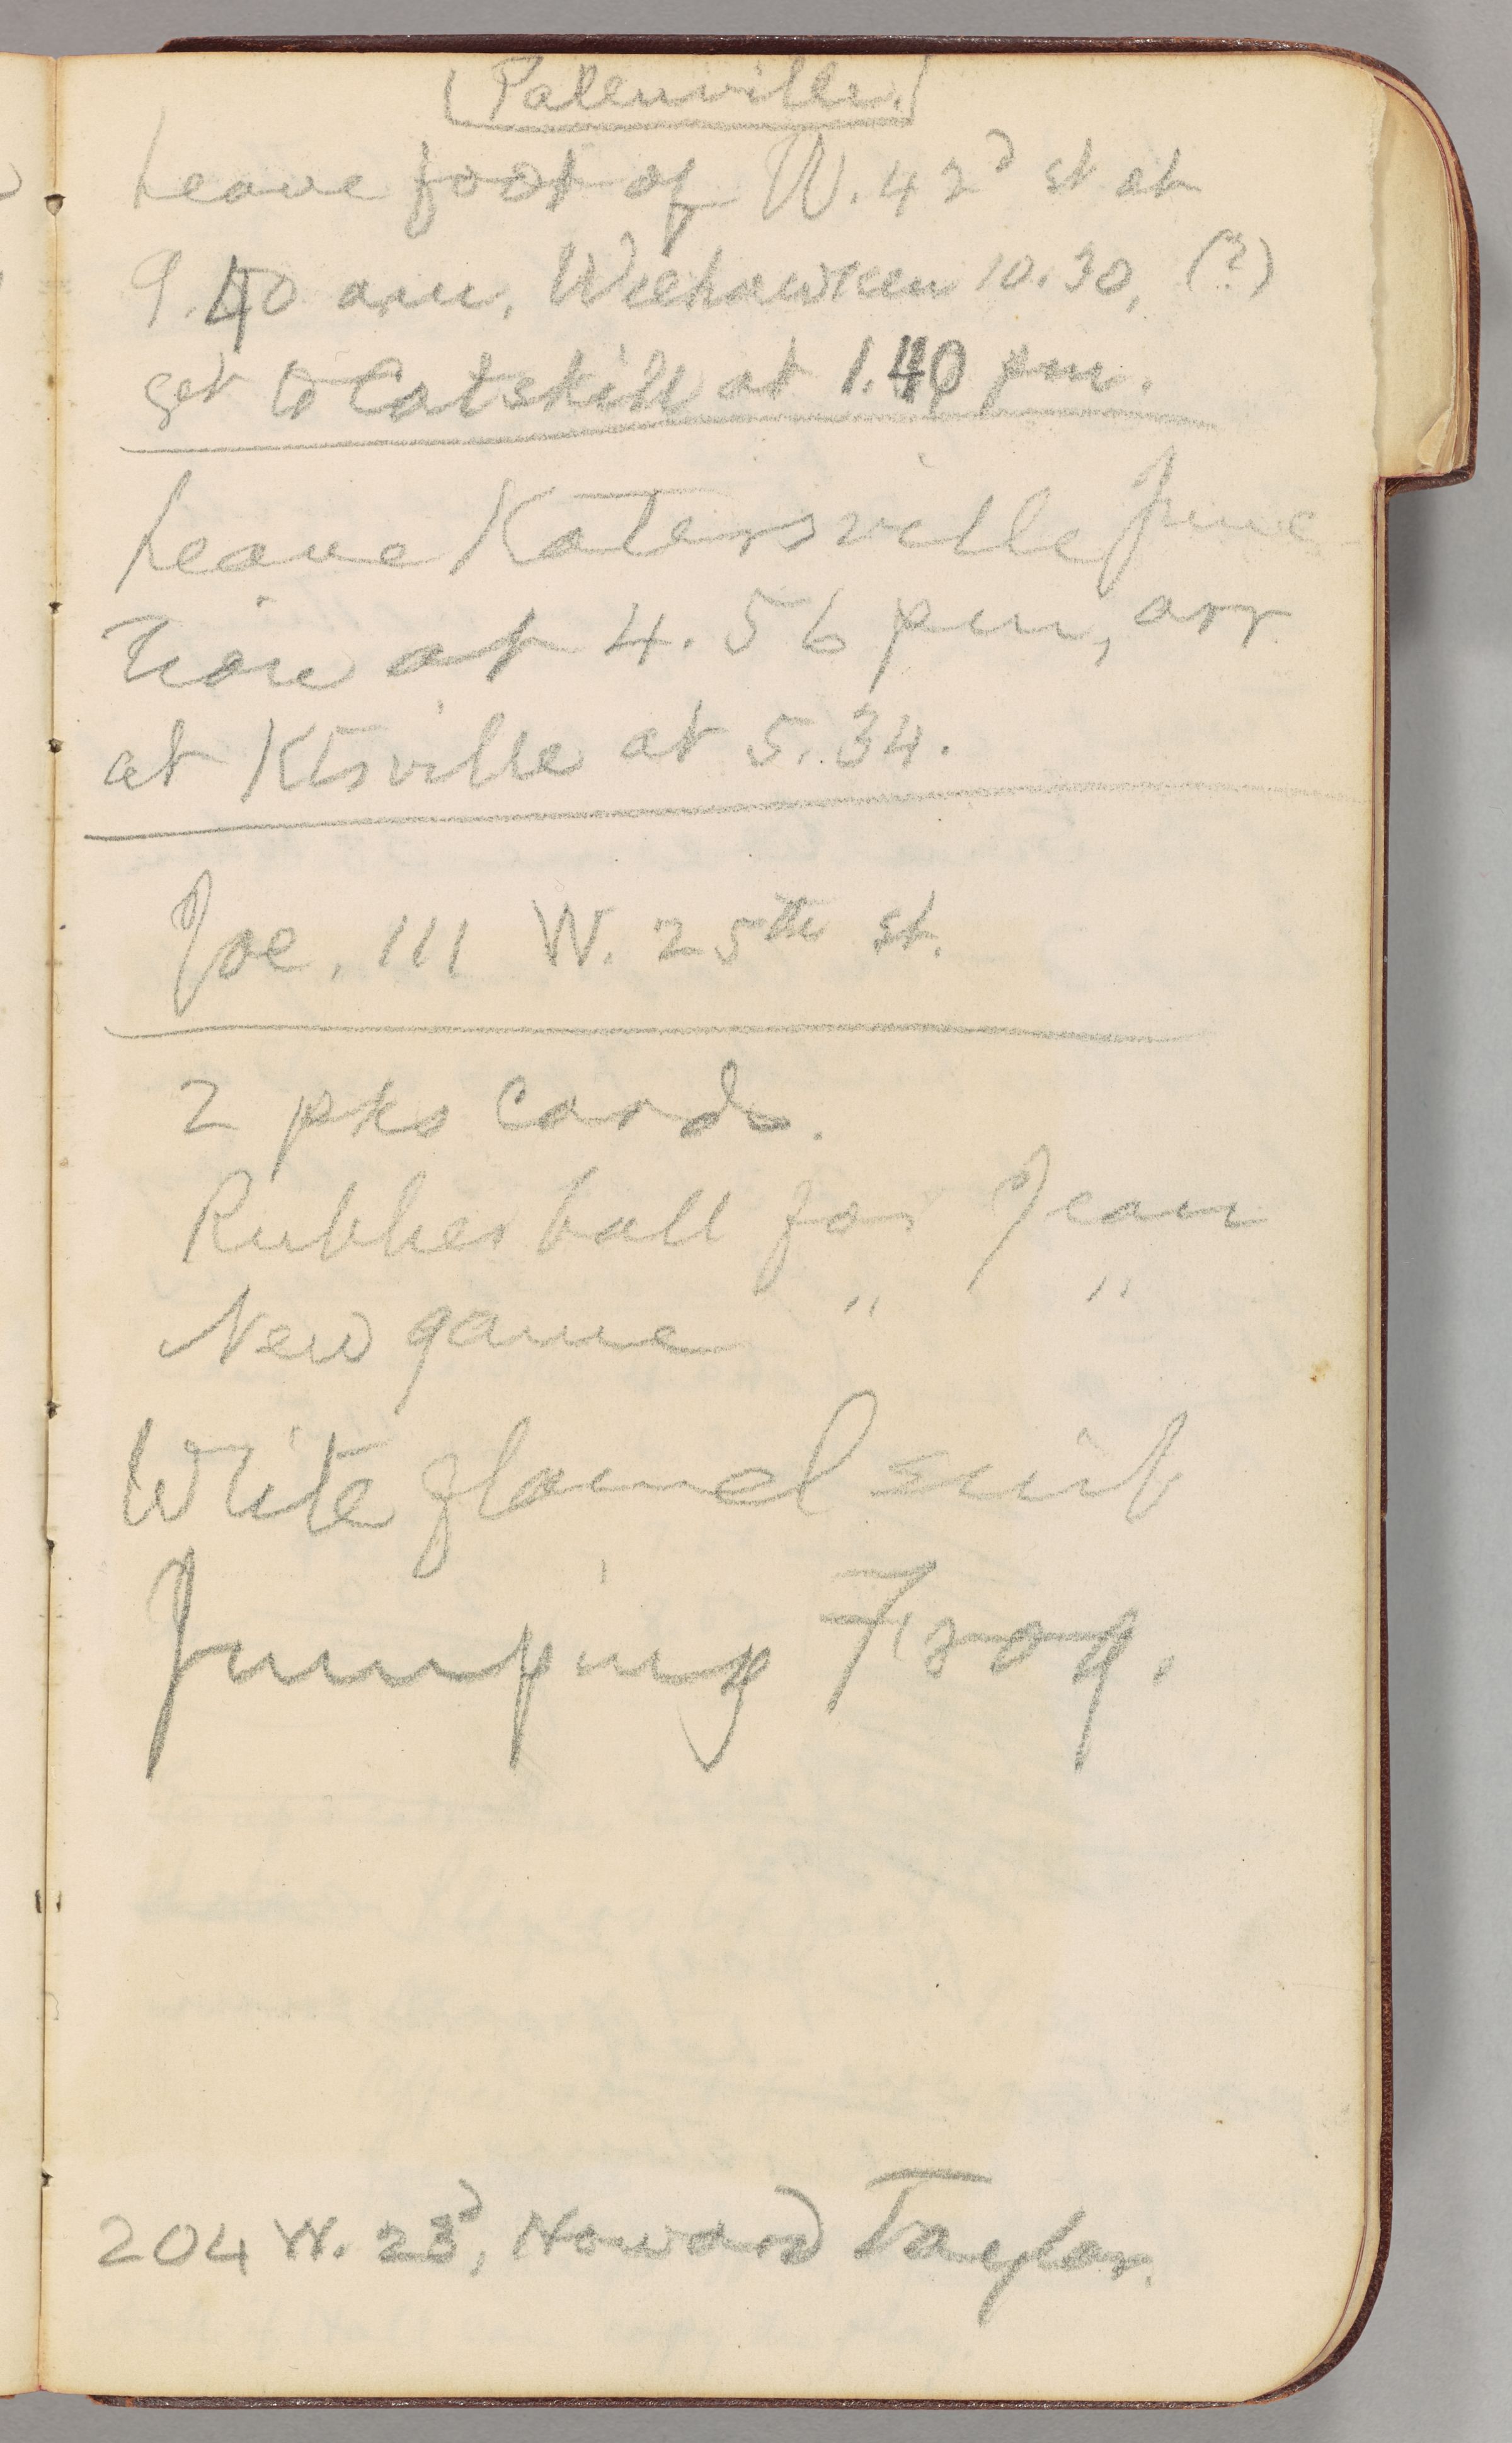 [Palenville.]
Leave foot of W. 42d st at
9.40 am, Weehawken 10.30, (?)
get to Catskill at 1.40 pm.
Leave Katersville Junc-
tion at 4.56 pm, arr
at Ktsville at 5.34.
Joe, 111 W. 25th st.
2 pks Cards.
Rubber ball for Jean
New game " "
White flannel suit
Jumping Frog.
204 W. 23d, Howard Taylor.